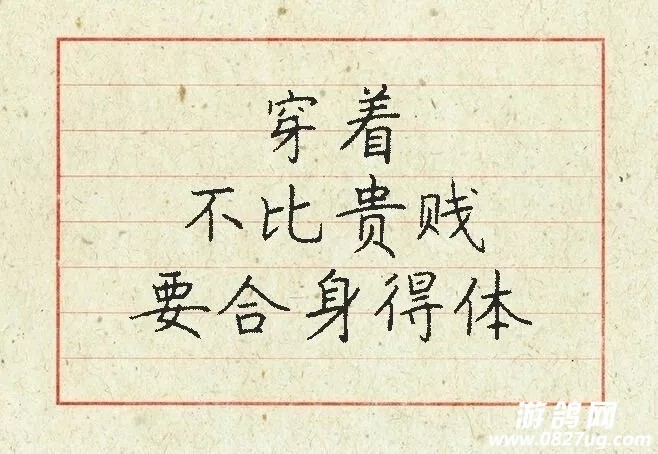 穿着
不比贵贱
要合身得体
游鸽网
www.0827ug.com